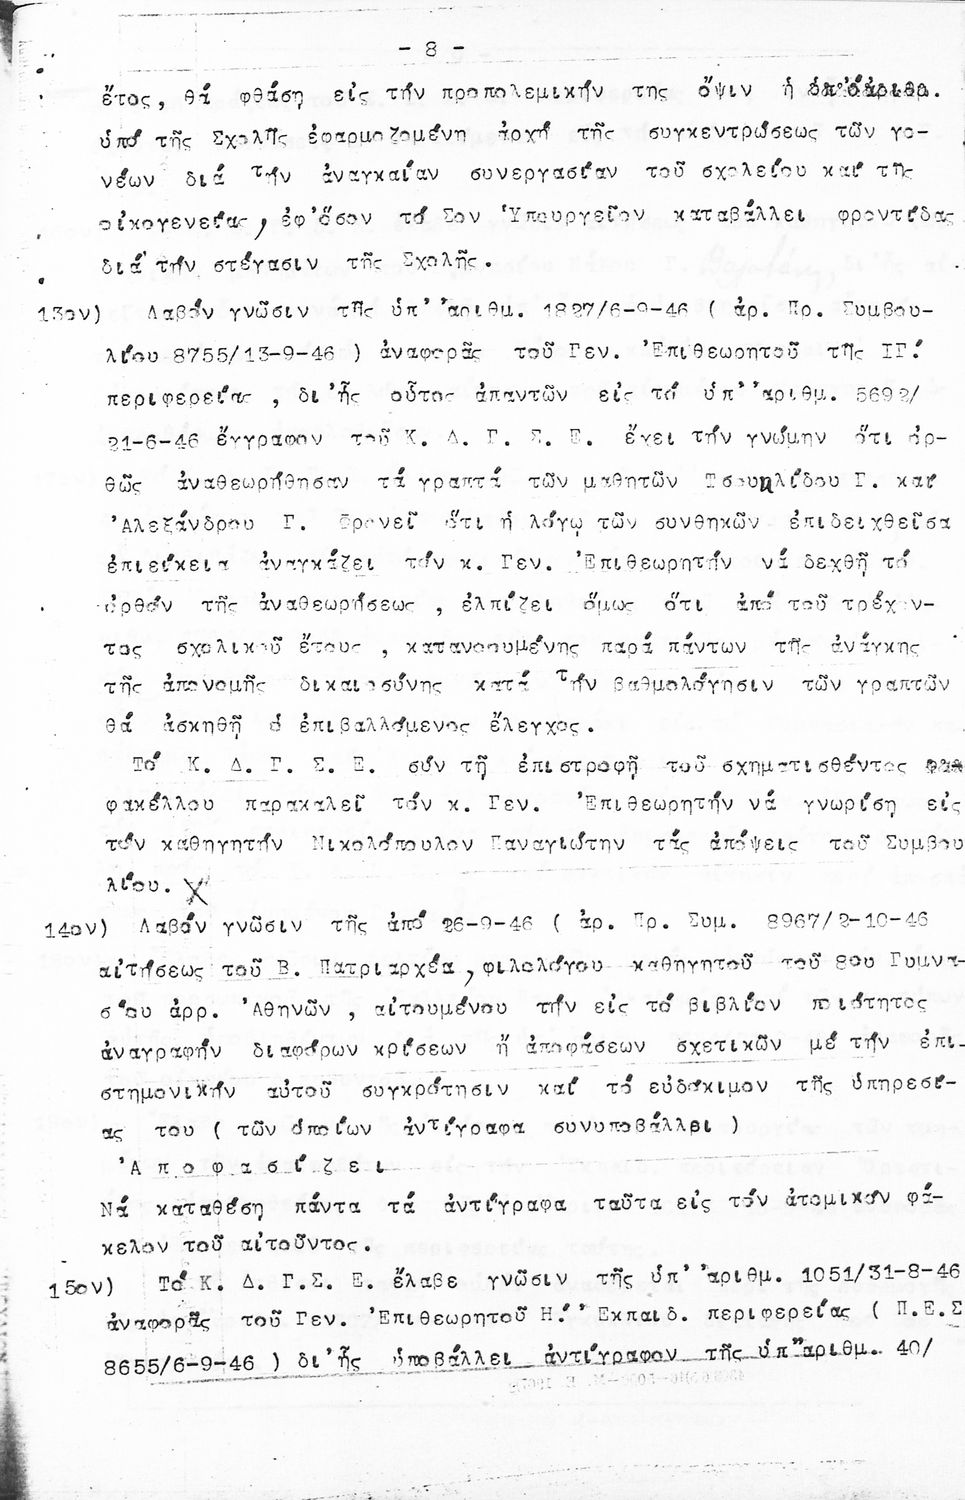 - 8 -
ἔτος, θά φθάση εἰς τήν προπολεμικήν της ὄψιν ἡ
ὑπό τῆς Σχολῆς ἐφαρμοζομένη ἀρχή τῆς συγκεντρώσεως τῶν γο-
νέων διά τήν ἀναγκαίαν συνεργασίαν τοῦ σχολείου καί τῆς
οἰκογενείας, ἐφ'ὅσον τό Σον Ὑπουργεῖον καταβάλλει φροντίδας
διά τήν στέγασιν τῆς Σχολῆς.
13ον) Λαβόν γνῶσιν τῆς ὑπ' ἀριθμ. 1827/6-9-46 ( ἀρ. Πρ. Συμβου-
λίου 8755/13-9-46 ) ἀναφορᾶς τοῦ Γεν. Ἐπιθεωρητοῦ τῆς ΙΓ΄
περιφερείας , δι'ἧς οὗτος ἀπαντῶν εἰς τό ὑπ' ἀριθμ. 5692/
21-6-46 ἔγγραφον τοῦ Κ. Δ. Γ. Σ. Ε. ἔχει τήν γνώμην ὅτι ὀρ-
θῶς ἀναθεωρήθησαν τά γραπτά τῶν μαθητῶν Τσουηλίδου Γ. καί
Ἀλεξάνδρου Γ. Φρονεῖ ὅτι ἡ λόγῳ τῶν συνθηκῶν ἐπιδειχθεῖσα
ἐπιείκεια ἀναγκάζει τόν κ. Γεν. Ἐπιθεωρητήν νά δεχθῆ τό
ὀρθόν τῆς ἀναθεωρήσεως , ἐλπίζει ὅμως ὅτι ἀπό τοῦ τρέχον-
τος σχολικοῦ ἔτους , κατανοουμένης παρά πάντων τῆς ἀνάγκης
τῆς ἀπονομῆς δικαιοσύνης κατά τήν βαθμολόγησιν τῶν γραπτῶν
θά ἀσκηθῆ ὁ ἐπιβαλλόμενος ἔλεγχος.
Τό Κ. Δ. Γ. Σ. Ε. σύν τῇ ἐπιστροφῇ τοῦ σχηματισθέντος
φακέλλου παρακαλεῖ τόν κ. Γεν. Ἐπιθεωρητήν νά γνωρίση εἰς
τόν καθηγητήν Νικολόπουλον Παναγιώτην τάς ἀπόψεις τοῦ Συμβου
λίου. X
14ον) Λαβόν γνῶσιν τῆς ἀπό 26-9-46 ( ἀρ. Πρ. Συμ. 8967/2-10-46
αἰτήσεως τοῦ Β. Πατριαρχέα, φιλολόγου καθηγητοῦ τοῦ 8ου Γυμνα-
σίου ἀρρ. Ἀθηνῶν , αἰτουμένου τήν εἰς τό βιβλίον ποιότητος
ἀναγραφήν διαφόρων κρίσεων ἤ ἀποφάσεων σχετικῶν μέ τήν ἐπι-
στημονικήν αὐτοῦ συγκρότησιν καί τό εὐδόκιμον τῆς ὑπηρεσί-
ας του ( τῶν ὁποίων ἀντίγραφα συνυποβάλλει )
Ἀ π ο φ α σ ί ζ ε ι
Νά καταθέση πάντα τά ἀντίγραφα ταῦτα εἰς τόν ἀτομικόν φά-
κελον τοῦ αἰτοῦντος.
15ον) Τό Κ. Δ. Γ.Σ. Ε. ἔλαβε γνῶσιν τῆς ὑπ' ἀριθμ. 1051/31-8-46
ἀναφορᾶς τοῦ Γεν. Ἐπιθεωρητοῦ Η.΄ Ἐκπαιδ. περιφερείας ( Π.Ε.Σ
8655/6-9-46 ) δι'ἧς ὑποβάλλει ἀντίγραφον τῆς ὑπ"ἀριθμ. 40/